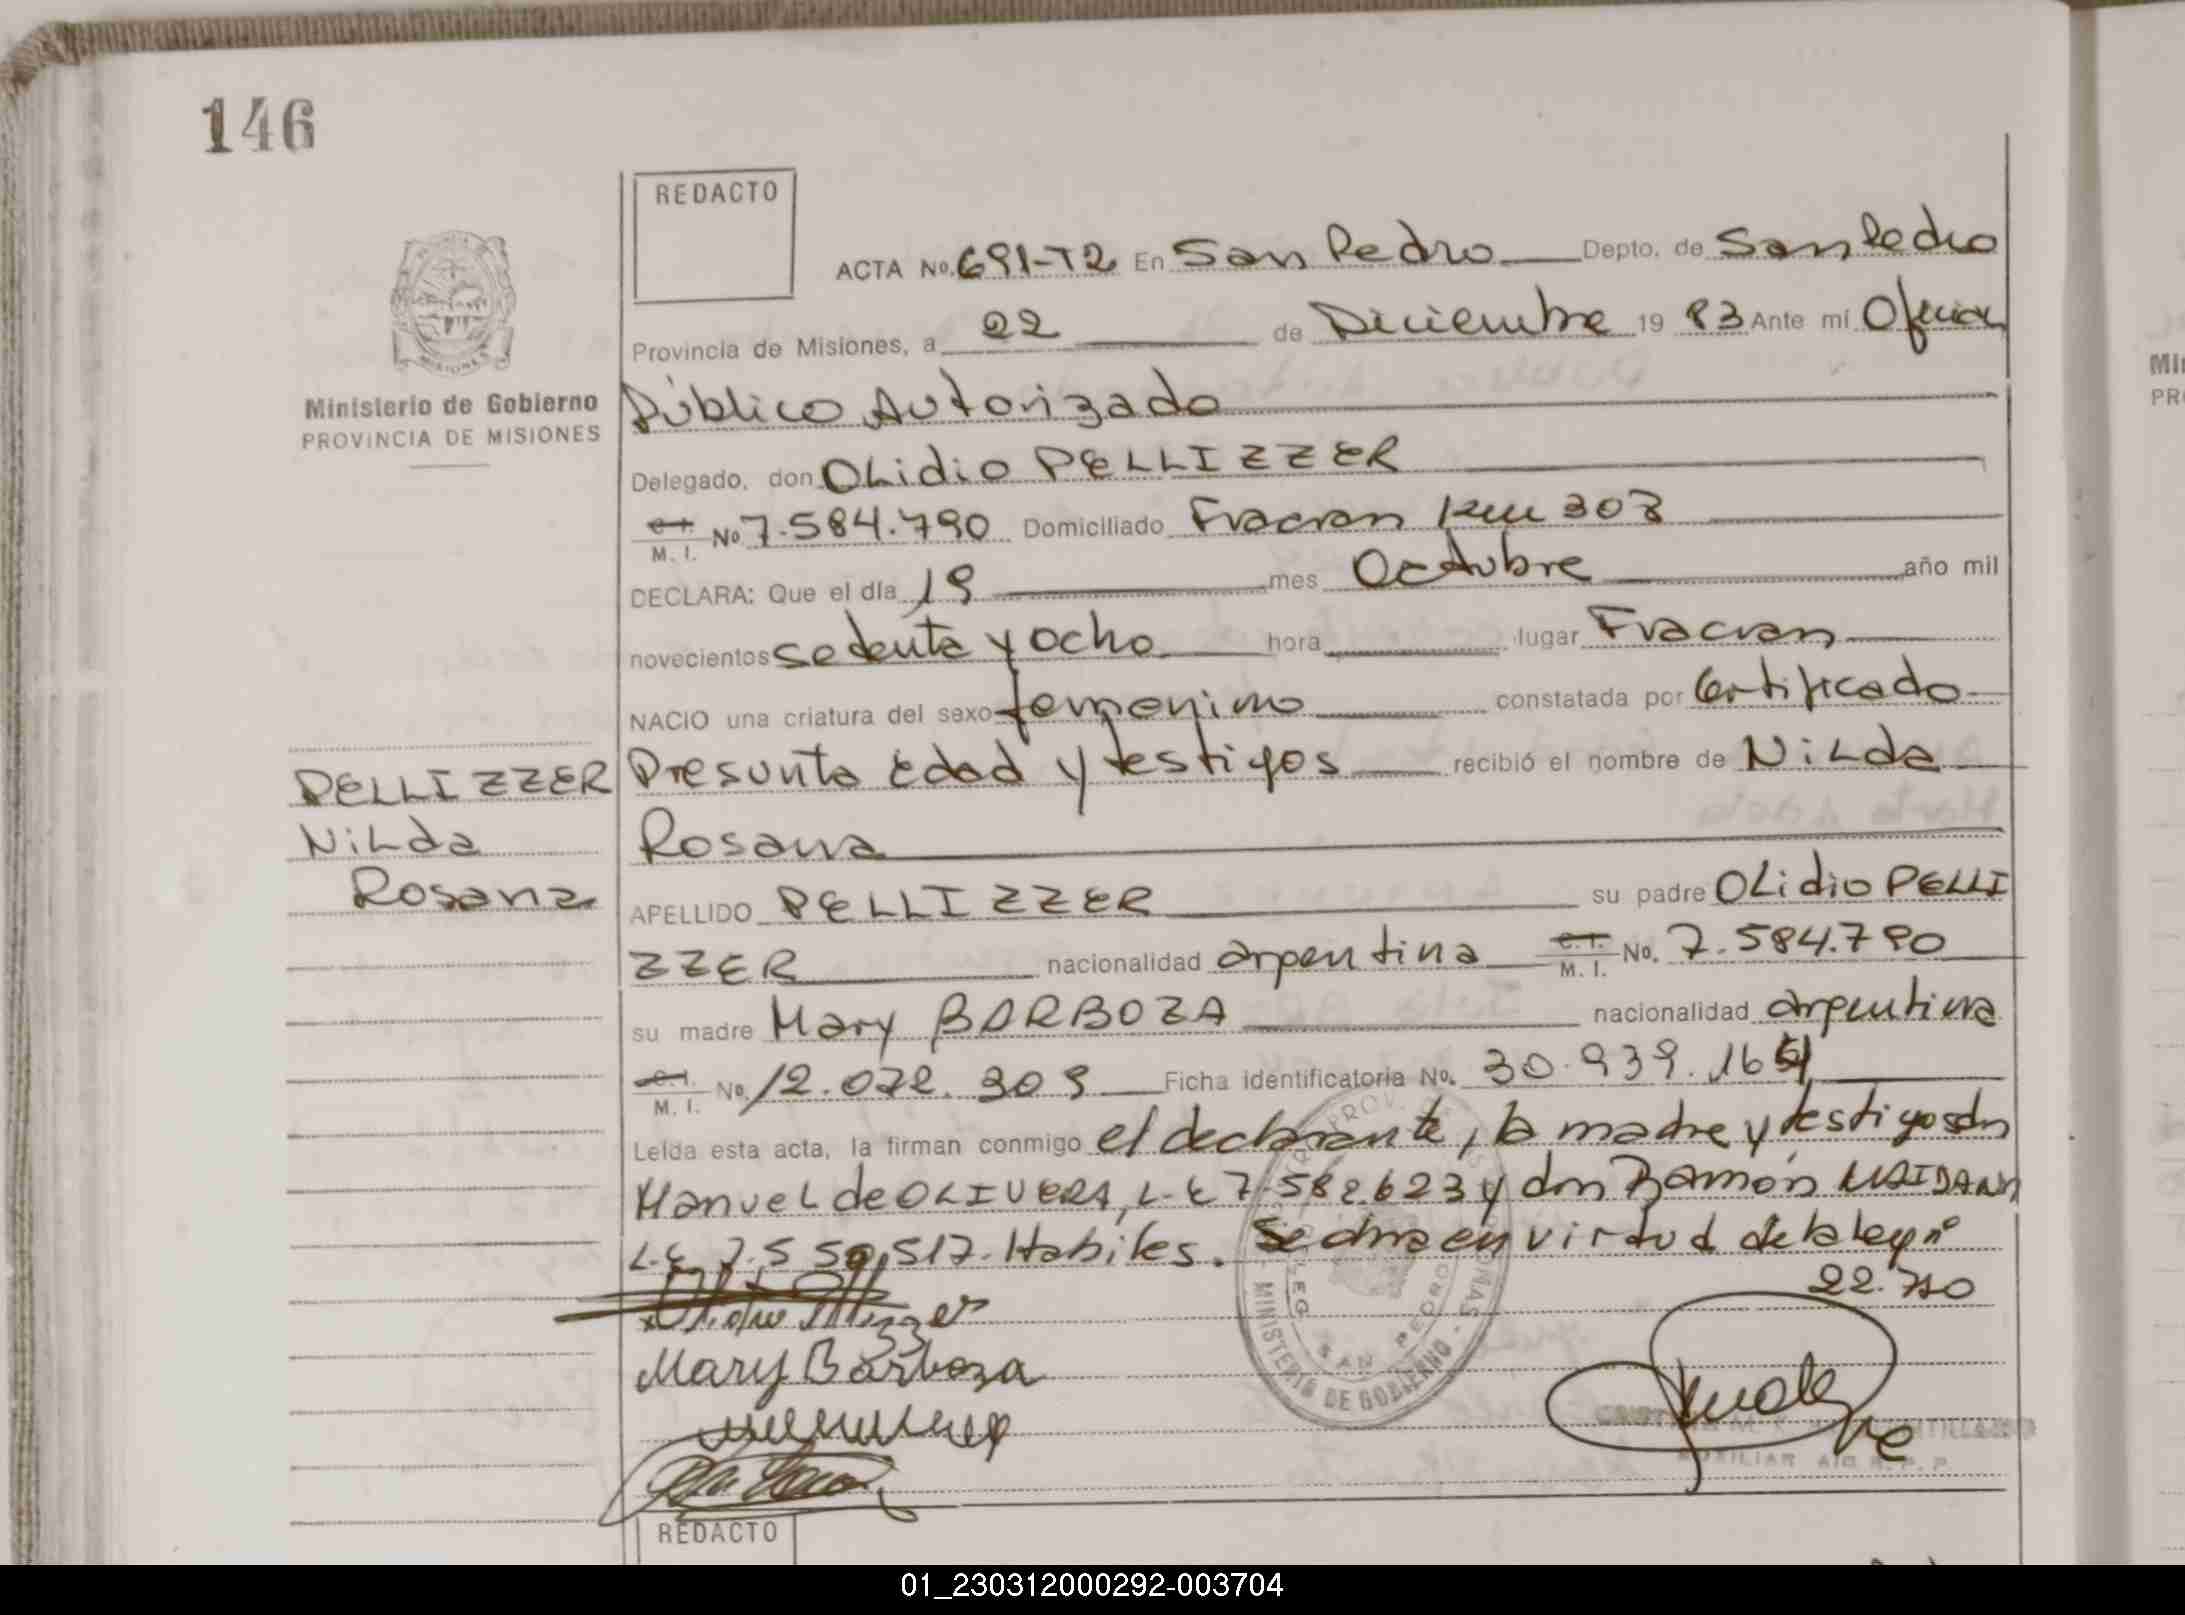 146
REDACTO
ACTA No. 691-T2 En San Pedro Depto. de San Pedro
Provincia de Misiones, a 22 de Diciembre 19 83 Ante mí Oficial
Ministerio de Gobierno
PROVINCIA DE MISIONES
Público Autorizado
Delegado, don OLidio PELLIZZER
C.I. M. I. No 7.584.790 Domiciliado Fracran Km 303
DECLARA: Que el día 19 mes Octubre año mil
novecientos setenta y ocho hora lugar Fracran
NACIO una criatura del sexo femenino constatada por Certificado
PELLIZZER
Nilda
Rosana
Presunta edad y testigos recibió el nombre de Nilda
Rosana
APELLIDO PELLIZZER su padre OLidio PELLI
ZZER nacionalidad argentina C.I. M. I. No. 7.584.790
su madre Mary BARBOZA nacionalidad argentina
C.I. M. I. No. 12.072.309 Ficha identificatoria No. 30.939.16
Leída esta acta, la firman conmigo el declarante, la madre y testigos don
Manuel de OLIVERA, L.E 7.582.623 y don Ramón
L.E 7.550.517. Habiles. Se en virtud de la ley nº
22.710
Mary Barboza
PROV. DE MISIONES
MINISTERIO DE GOBIERNO
SAN PEDRO
AUXILIAR
REDACTO
Mi
PR
01_230312000292-003704